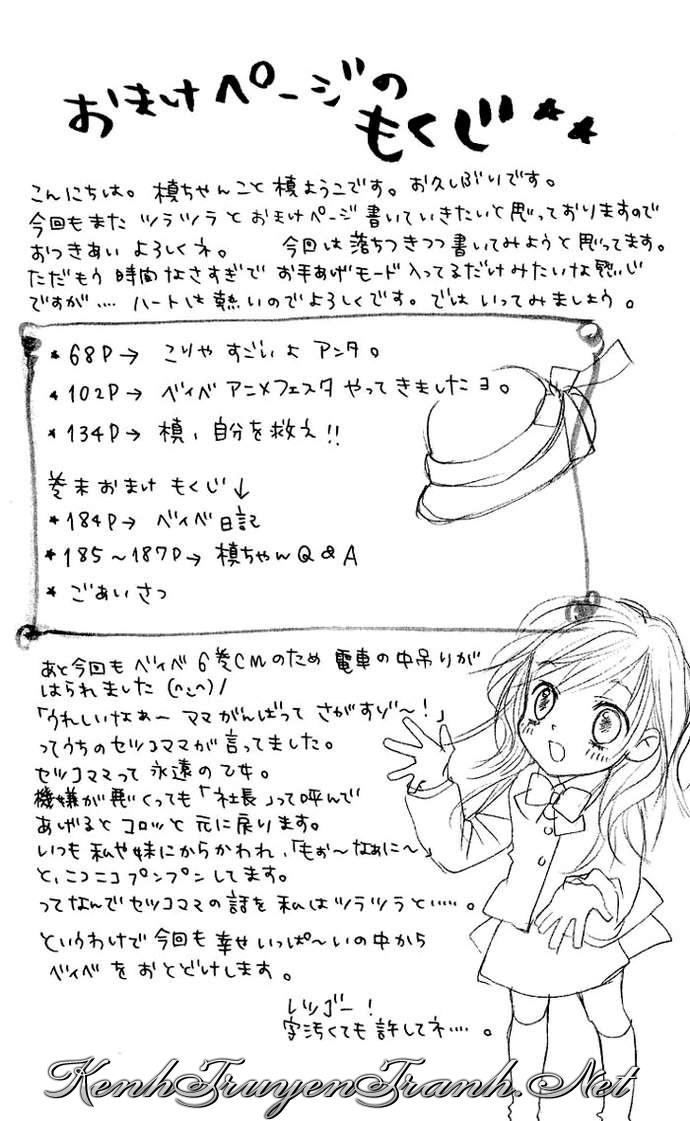 おまけページの
もくじ★★
こんにちは。 槙ちゃんこと 槙ようこです。お久しぶりです。
今回もまた ツラツラ と おまけページ 書いていきたいと思っておりますので
おつきあい よろしくネ。 今回は 落ちつきつつ 書いてみようと思ってます。
ただもう 時間なさすぎで お手あげモード 入ってるだけみたいな感じ
ですが…. ハートは熱いのでよろしくです。では いってみましょう。
★68P→ こりゃ すごいよ アンタ。
★102P→ ベイベ アニメフェスタ やってきましたヨ。
★134P→ 槙、自分を救え!!
巻末 おまけ もくじ↓
★184P→ ベイベ日記
★185~187P→ 槙ちゃんQ&A
★ ごあいさつ
あと今回も ベイベ6巻CMのため 電車の中吊りが
はられました (^ー^)/
「うれしいなぁー ママがんばって さがすぞ〜!」
ってうちのセツコママが言ってました。
セツコママって 永遠の乙女。
機嫌が悪くっても「社長」って呼んで
あげると コロッと 元に戻ります。
いつも 私や妹にからかわれ、「もぉ〜なぁに〜」
と、ニコニコプンプンしてます。
ってなんでセツコママの話を 私はツラツラと….. 。
というわけで 今回も 幸せいっぱ〜いの中から
ベイベ を おとどけします。
レッツゴー!
字汚くても 許してネ…. 。
KenhTruyenTranh.Net